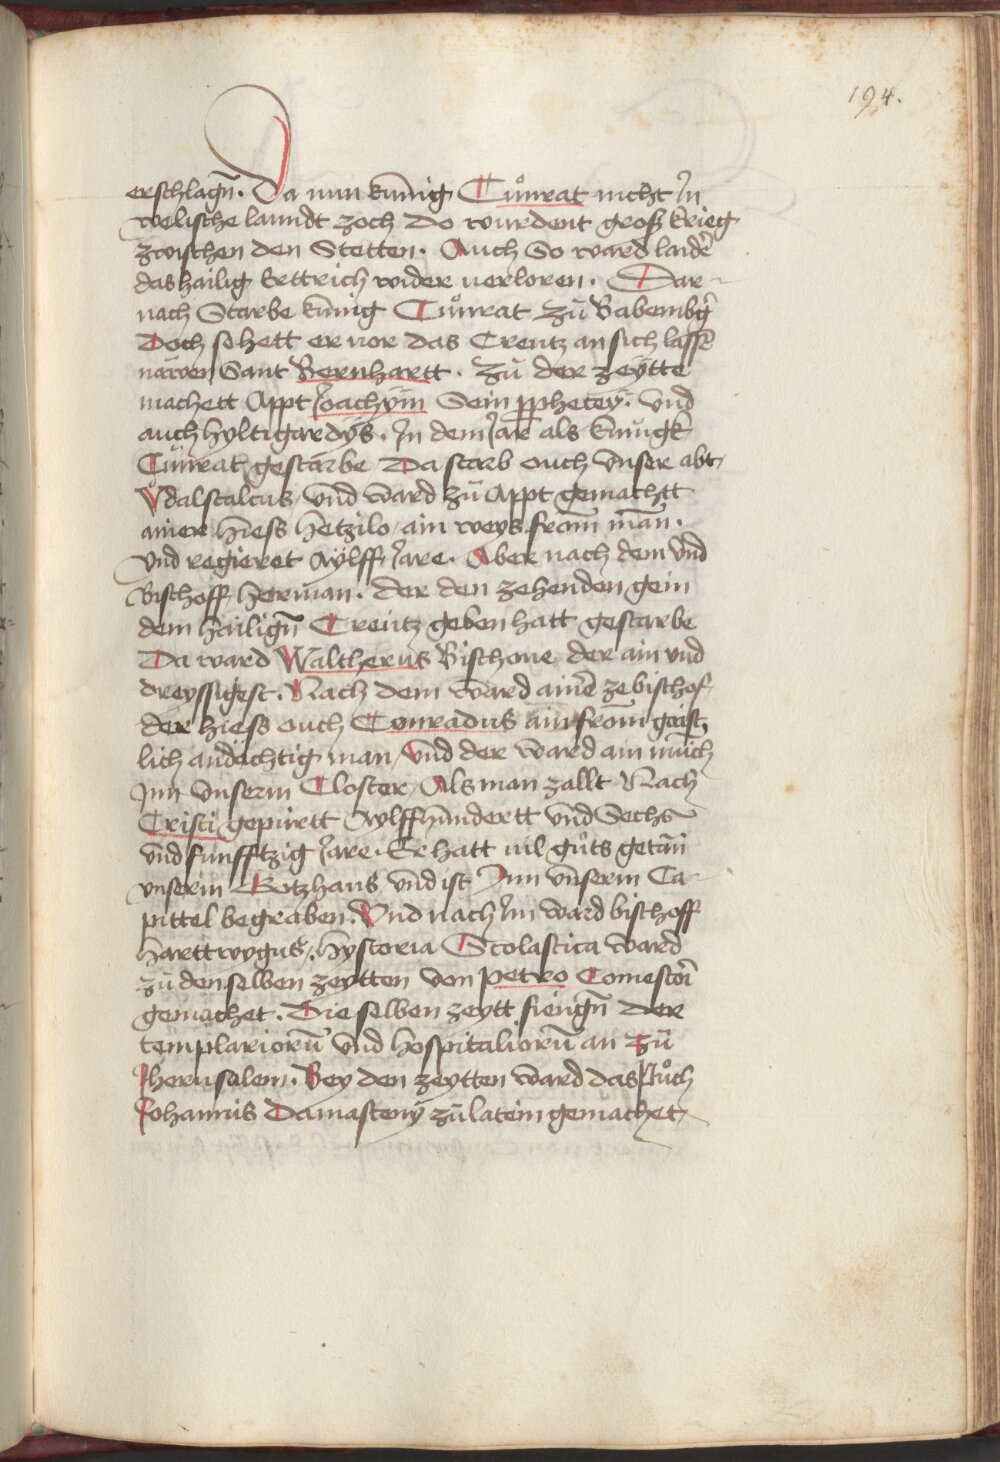 194.
erschlagn̄. Da nun kunig Cůnrat nicht Jn
welische lanndt zoch do wurdent groß krieg
zwischen den Stetten. Auch So ward laider̄
das hailig Erttrich wider uerloren. Dar-
nach Starbe kunig Cůnrat zů Babembḡ
Doch so hett er uor das Creutz an sich lassē
näwen Sant Bernhartt. Zů der zeytte
machett Appt Joachÿm Sein pphetey. Vnd
auch hyltigardys. Jn dem Jar als kunigk
Cůnrat gestarbe Da starb ouch vnser abt
Vdalscalcus, vnd ward zů Appt gemachtt
ainer hiess hetzilo, ain weys from̄ man.
vnd regieret Aÿlff Jare. Aber nach dem vnd
Bischoff herman. der den zehenden gein
dem hailign̄ Creutz geben hatt gestarbe
Da ward Waltherus Bischoue der ain vnd
dreyssigest. Nach dem ward ainē ze bischof
der hiess ouch Conradus ain from̄ gaist,
lich andechtig man, vnd der ward ain munich
Jnn vnserm Closter, Als man zallt Nach
Cristi gepürtt Aylffhundertt vnd Sechs
vnd funfftzig Jare. Er hatt uil gůts getan
vnserm Gotzhaus, vnd ist Jnn vnserm Ca-
pittel begraben. Vnd nach Jm ward bischoff
harttwygus. hystoria Scolastica ward
zů denselben zeytten von petro Comestorī
gemachet. Die selben zeytt fiengn̄ der
templariorū vnd hospitaliorū an zů
Jherusalem. Bey den zeytten ward das Půch
Johannis Damasceny zů latein gemachet,